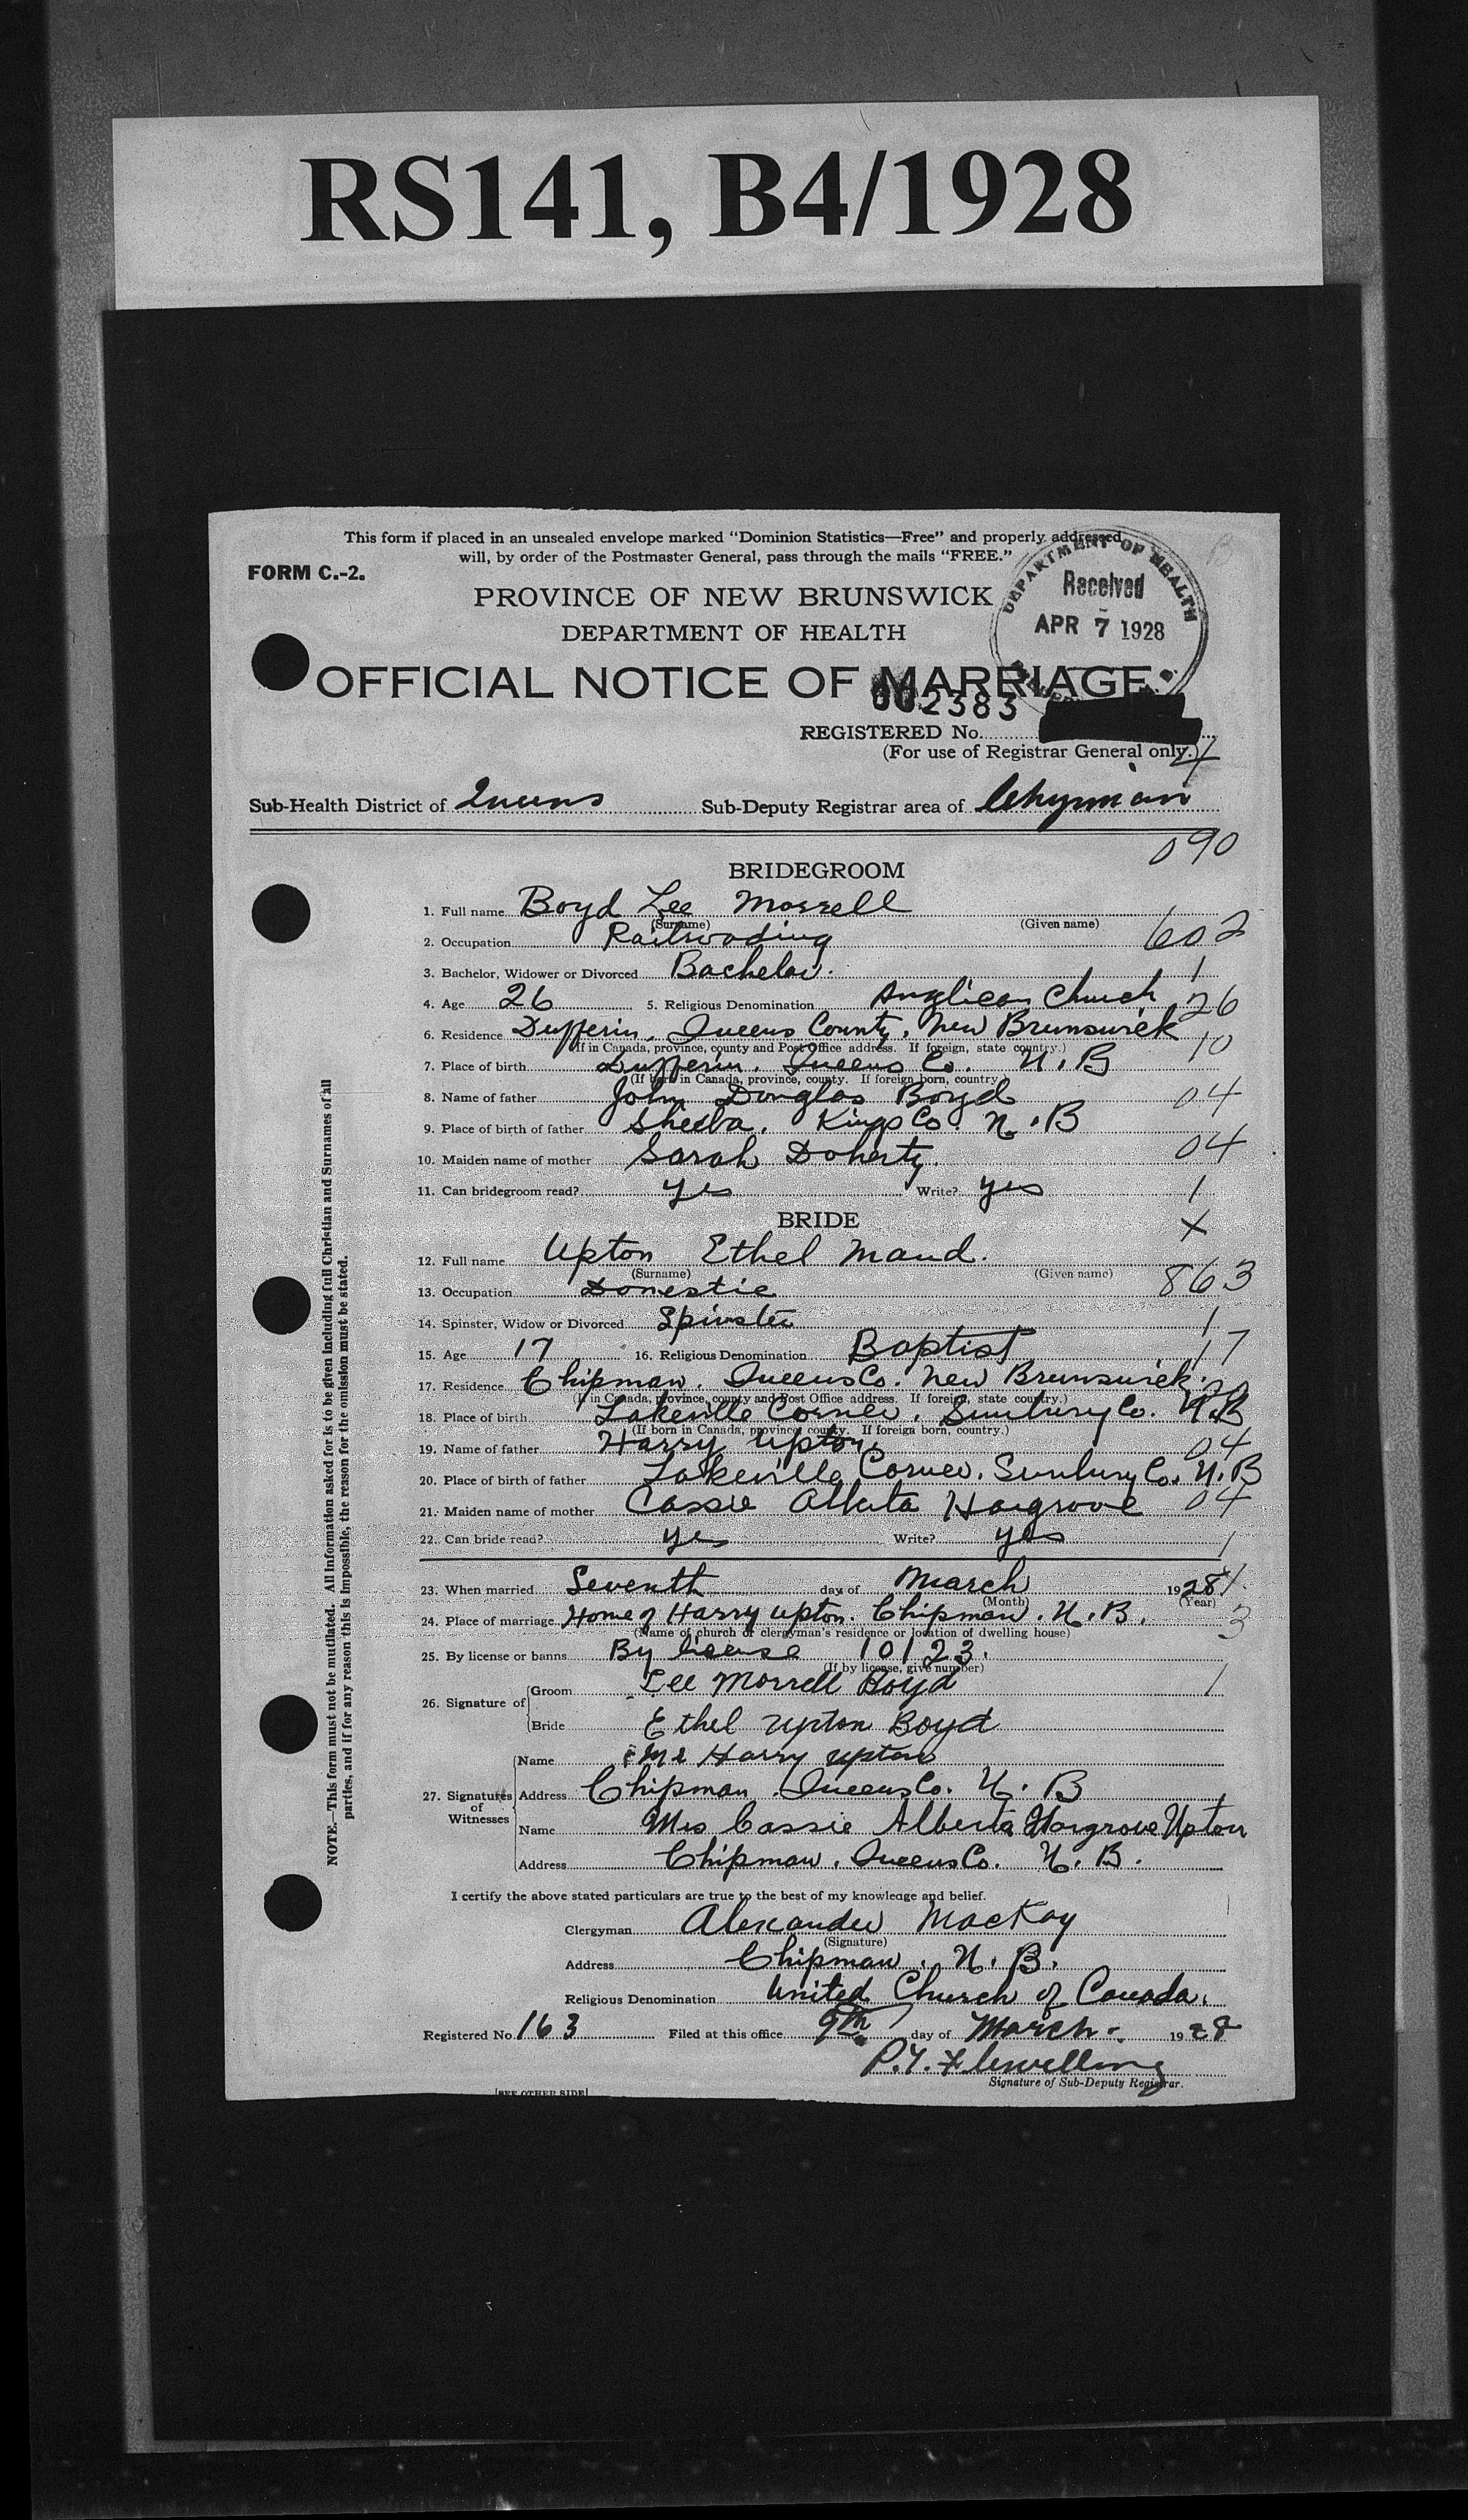 RS141, B4/1928
This form if placed in an unsealed envelope marked "Dominion Statistics—Free" and properly addressed
will, by order of the Postmaster General, pass through the mails "FREE."
FORM C.-2.
PROVINCE OF NEW BRUNSWICK
DEPARTMENT OF HEALTH
DEPARTMENT OF HEALTH
Received
APR 7 1928
OFFICIAL NOTICE OF MARRIAGE
002383
REGISTERED No.
(For use of Registrar General only.) 4
Sub-Health District of Queens Sub-Deputy Registrar area of Chipman
090
BRIDEGROOM
1. Full name Boyd Lee Morrell
(Surname) (Given name)
2. Occupation Railroading 602
3. Bachelor, Widower or Divorced Bachelor. 1
4. Age 26 5. Religious Denomination Anglican Church 26
6. Residence Dufferin, Queens County, New Brunswick
(If in Canada, province, county and Post Office address. If foreign, state country.) 10
7. Place of birth Dufferin. Queens Co. N.B
(If born in Canada, province, county. If foreign born, country.)
8. Name of father John Douglas Boyd 04
9. Place of birth of father Sheba. Kings Co. N.B
10. Maiden name of mother Sarah Doherty. 04
11. Can bridegroom read? yes Write? yes 1
BRIDE X
12. Full name Upton Ethel Maud.
(Surname) (Given name)
13. Occupation Domestic 863
14. Spinster, Widow or Divorced Spinster 1
15. Age 17 16. Religious Denomination Baptist 17
17. Residence Chipman. Queens Co. New Brunswick.
(If in Canada, province, county and Post Office address. If foreign, state country.)
18. Place of birth Lakeville Corner, Sunbury Co. N.B
(If born in Canada, province, county. If foreign born, country.)
19. Name of father Harry Upton. 04
20. Place of birth of father Lakeville Corner. Sunbury Co. N.B
21. Maiden name of mother Cassie Alberta Hargrove 04
22. Can bride read? yes Write? yes 1
23. When married Seventh day of March 1928
(Month) (Year)
24. Place of marriage Home of Harry Upton. Chipman. N.B. 3
(Name of church or clergyman's residence or location of dwelling house)
25. By license or banns By license 10123.
(If by license, give number)
26. Signature of Groom Lee Morrell Boyd 1
Bride Ethel Upton Boyd
27. Signatures of Witnesses
Name Mr Harry Upton
Address Chipman. Queens Co. N.B
Name Mrs Cassie Alberta Hargrove Upton
Address Chipman. Queens Co. N.B.
I certify the above stated particulars are true to the best of my knowledge and belief.
Clergyman Alexander MacKay
(Signature)
Address Chipman. N.B.
Religious Denomination United Church of Canada.
Registered No. 163 Filed at this office 9th day of March 1928
P.Y. Flewelling
Signature of Sub-Deputy Registrar.
[SEE OTHER SIDE]
NOTE.—This form must not be mutilated. All information asked for is to be given including full Christian and Surnames of all
parties, and if for any reason this is impossible, the reason for the omission must be stated.